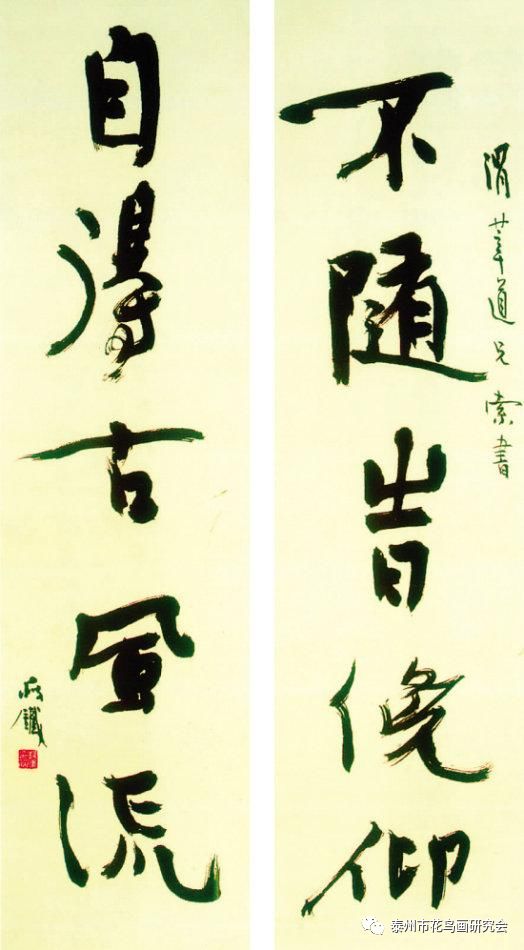 渭莘道兄索書
不隨旹俛仰
自得古風流
瘦鐵
泰州市花鸟画研究会